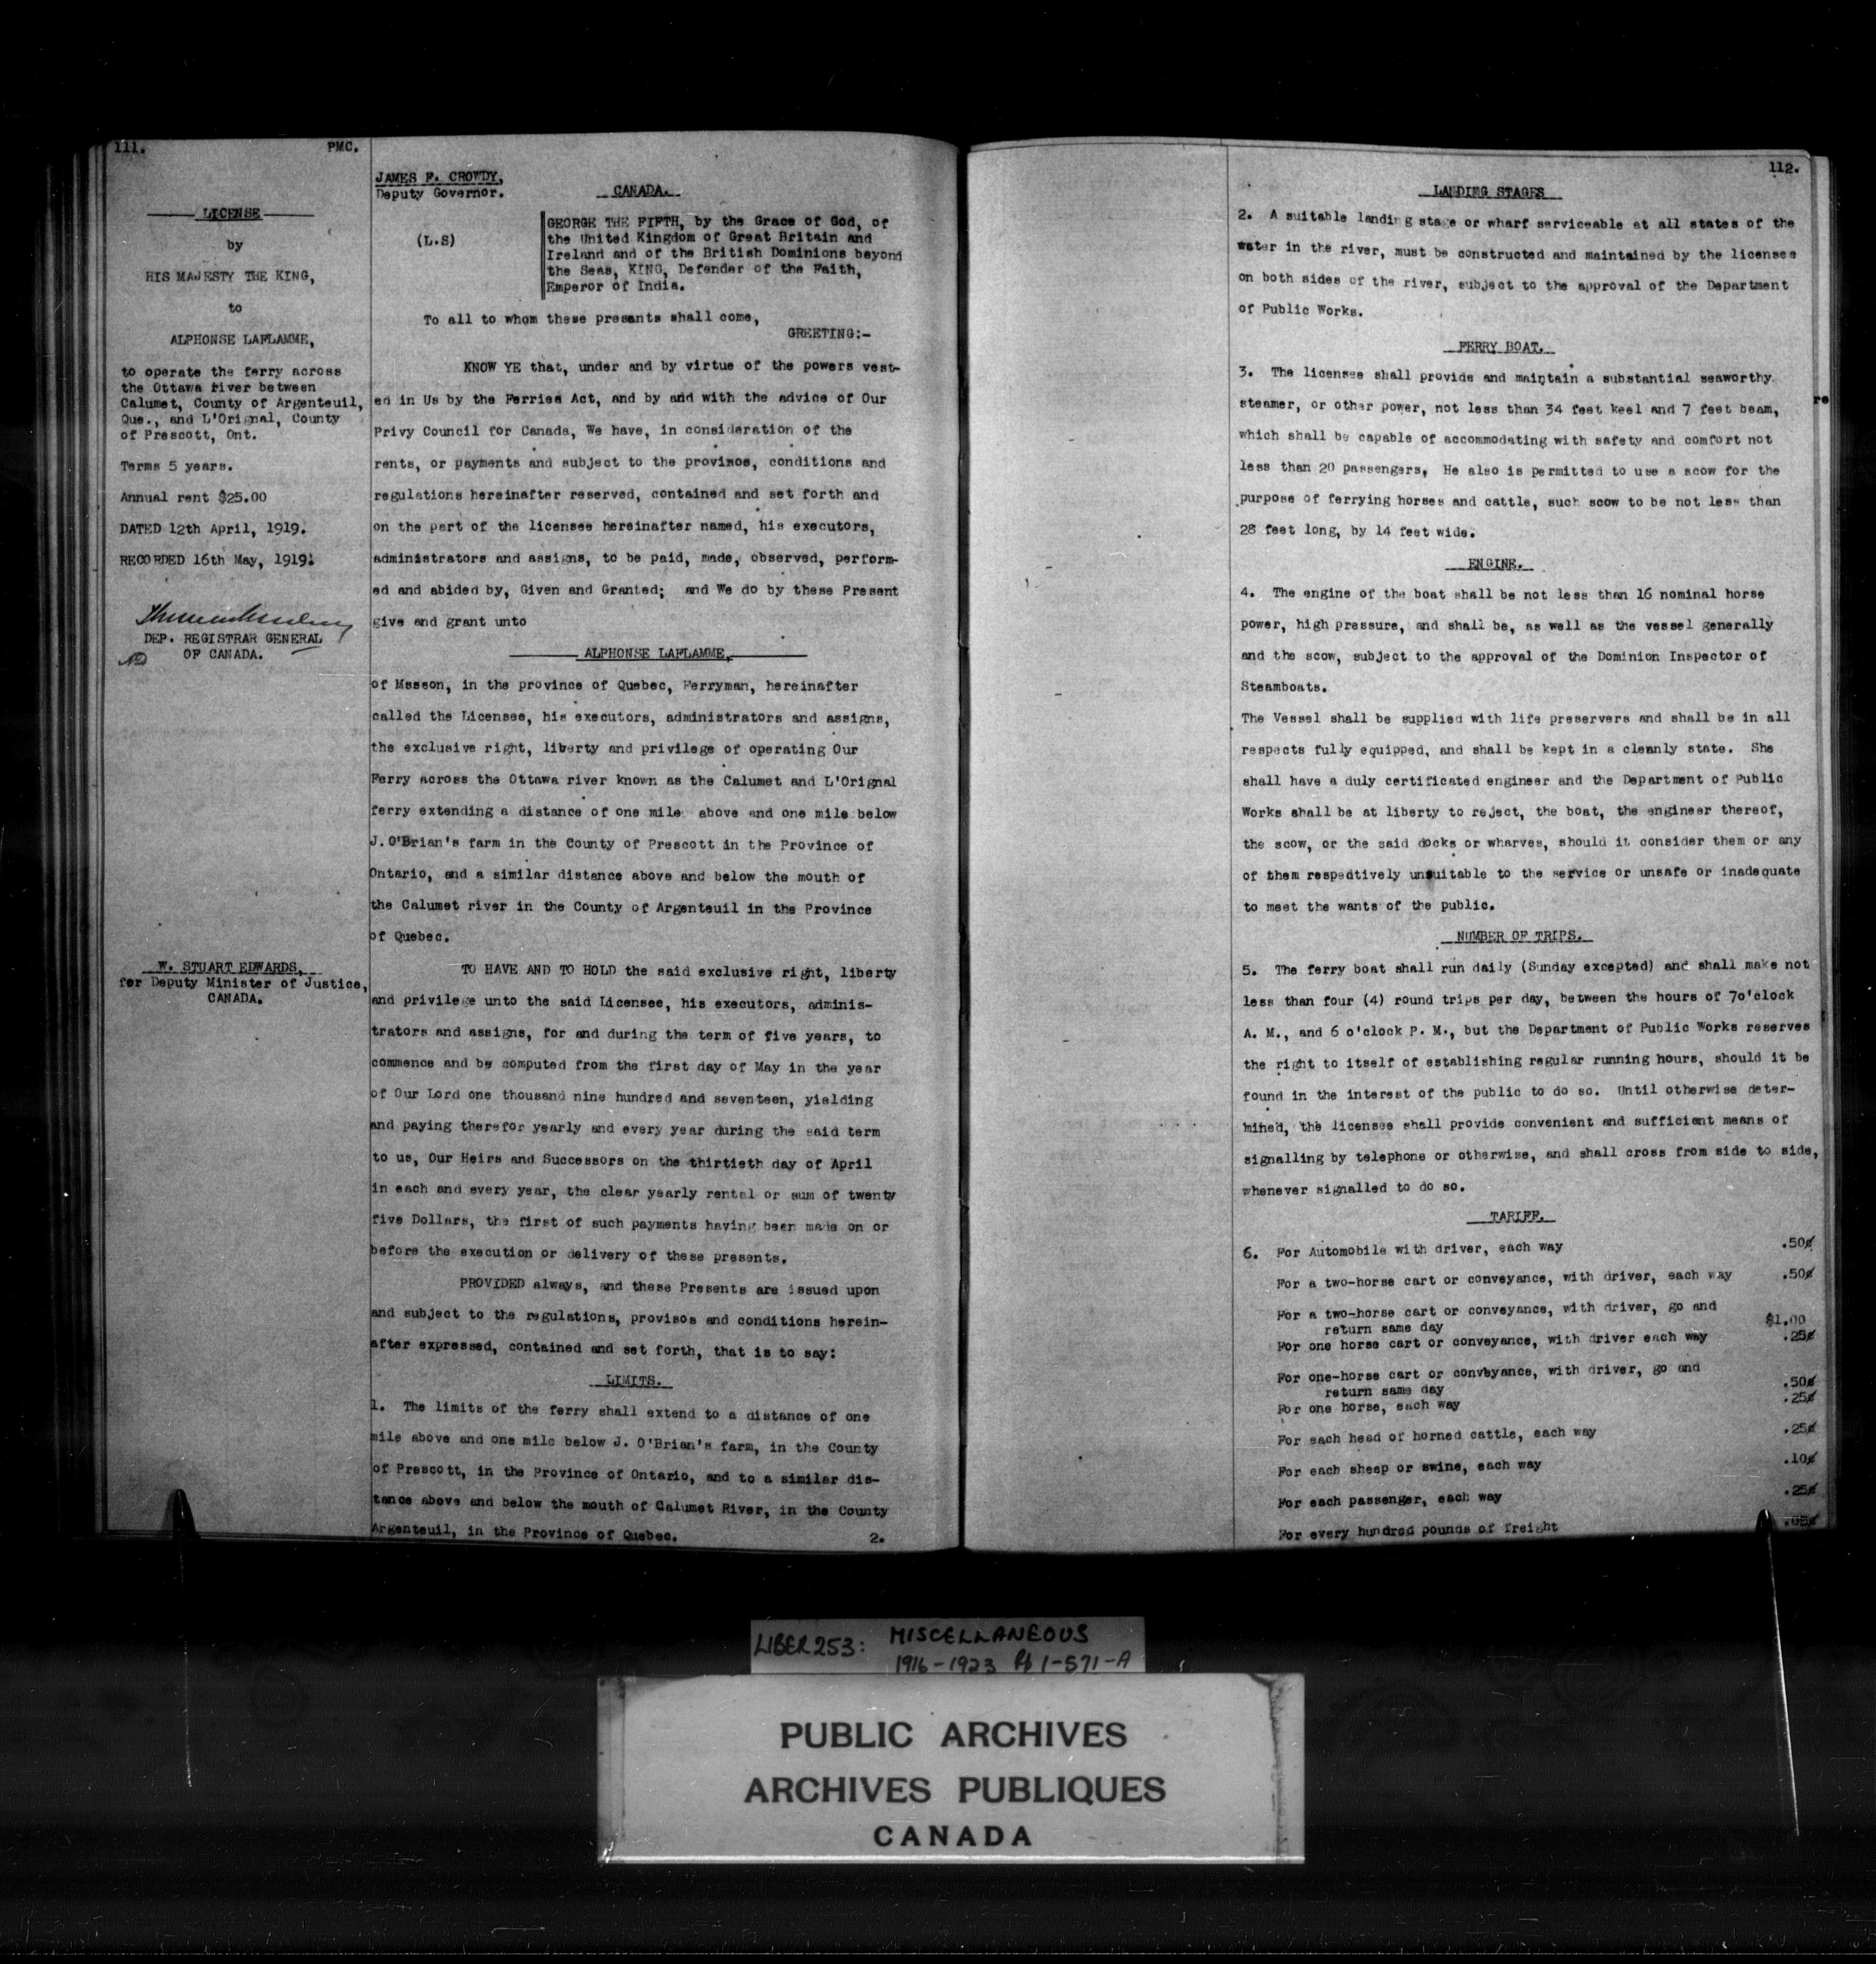 111. PMC.
LICENSE
by
HIS MAJESTY THE KING,
to
ALPHONSE LAFLAMME,
to operate the ferry across
the Ottawa river between
Calumet, County of Argenteuil,
Que., and L'Orignal, County
of Prescott, Ont.
Terms 5 years.
Annual rent $25.00
DATED 12th April, 1919.
RECORDED 16th May, 1919.
DEP. REGISTRAR GENERAL
OF CANADA.
W. STUART EDWARDS,
for Deputy Minister of Justice,
CANADA.
JAMES F. CROWDY,
Deputy Governor.
CANADA.
(L.S)
GEORGE THE FIFTH, by the Grace of God, of
the United Kingdom of Great Britain and
Ireland and of the British Dominions beyond
the Seas, KING, Defender of the Faith,
Emperor of India.
To all to whom these presents shall come,
GREETING:-
KNOW YE that, under and by virtue of the powers vest-
ed in Us by the Ferries Act, and by and with the advice of Our
Privy Council for Canada, We have, in consideration of the
rents, or payments and subject to the provisos, conditions and
regulations hereinafter reserved, contained and set forth and
on the part of the licensee hereinafter named, his executors,
administrators and assigns, to be paid, made, observed, perform-
ed and abided by, Given and Granted; and We do by these Present
give and grant unto
ALPHONSE LAFLAMME,
of Masson, in the province of Quebec, Ferryman, hereinafter
called the Licensee, his executors, administrators and assigns,
the exclusive right, liberty and privilege of operating Our
Ferry across the Ottawa river known as the Calumet and L'Orignal
ferry extending a distance of one mile above and one mile below
J.O'Brian's farm in the County of Prescott in the Province of
Ontario, and a similar distance above and below the mouth of
the Calumet river in the County of Argenteuil in the Province
of Quebec.
TO HAVE AND TO HOLD the said exclusive right, liberty
and privilege unto the said Licensee, his executors, adminis-
trators and assigns, for and during the term of five years, to
commence and be computed from the first day of May in the year
of Our Lord one thousand nine hundred and seventeen, yielding
and paying therefor yearly and every year during the said term
to us, Our Heirs and Successors on the thirtieth day of April
in each and every year, the clear yearly rental or sum of twenty
five Dollars, the first of such payments having been made on or
before the execution or delivery of these presents.
PROVIDED always, and these Presents are issued upon
and subject to the regulations, provisos and conditions herein-
after expressed, contained and set forth, that is to say:
LIMITS.
1. The limits of the ferry shall extend to a distance of one
mile above and one mile below J. O'Brian's farm, in the County
of Prescott, in the Province of Ontario, and to a similar dis-
tance above and below the mouth of Calumet River, in the County
Argenteuil, in the Province of Quebec. 2.
112.
LANDING STAGES
2. A suitable landing stage or wharf serviceable at all states of the
water in the river, must be constructed and maintained by the licensee
on both sides of the river, subject to the approval of the Department
of Public Works.
FERRY BOAT.
3. The licensee shall provide and maintain a substantial seaworthy
steamer, or other power, not less than 34 feet keel and 7 feet beam,
re
which shall be capable of accommodating with safety and comfort not
less than 20 passengers, He also is permitted to use a scow for the
purpose of ferrying horses and cattle, such scow to be not less than
28 feet long, by 14 feet wide.
ENGINE.
4. The engine of the boat shall be not less than 16 nominal horse
power, high pressure, and shall be, as well as the vessel generally
and the scow, subject to the approval of the Dominion Inspector of
Steamboats.
The Vessel shall be supplied with life preservers and shall be in all
respects fully equipped, and shall be kept in a cleanly state. She
shall have a duly certificated engineer and the Department of Public
Works shall be at liberty to reject, the boat, the engineer thereof,
the scow, or the said docks or wharves, should it consider them or any
of them respectively unsuitable to the service or unsafe or inadequate
to meet the wants of the public.
NUMBER OF TRIPS.
5. The ferry boat shall run daily (Sunday excepted) and shall make not
less than four (4) round trips per day, between the hours of 7o'clock
A. M., and 6 o'clock P. M., but the Department of Public Works reserves
the right to itself of establishing regular running hours, should it be
found in the interest of the public to do so. Until otherwise deter-
mined, the licensee shall provide convenient and sufficient means of
signalling by telephone or otherwise, and shall cross from side to side,
whenever signalled to do so.
TARIFF.
6. For Automobile with driver, each way .50¢
For a two-horse cart or conveyance, with driver, each way .50¢
For a two-horse cart or conveyance, with driver, go and
return same day $1.00
For one horse cart or conveyance, with driver each way .25¢
For one-horse cart or conveyance, with driver, go and
return same day .50¢
For one horse, each way .25¢
For each head of horned cattle, each way .25¢
For each sheep or swine, each way .10¢
For each passenger, each way .25¢
For every hundred pounds of freight .05¢
LIBER 253: MISCELLANEOUS
1916-1923 Pp 1-571-A
PUBLIC ARCHIVES
ARCHIVES PUBLIQUES
CANADA